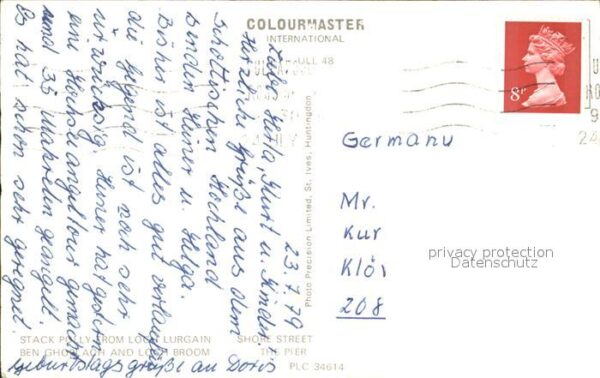 COLOURMASTER
INTERNATIONAL
48
8P
23.7.79
Liebe Herta, Kurt u. Kinder.
Herzliche Grüße aus dem
Schottischen Hochland
senden Heiner u. Helga.
Bisher ist alles gut verlaufen
die Gegend ist noch sehr
urwüchsig. Heiner hat gestern
eine Hochseeangeltour gemacht
und 35 Makrelen geangelt.
Es hat schon sehr geregnet.
Geburtstagsgrüße an Doris
Photo Precision Limited, St. Ives, Huntingdon
Germany
Mr.
Kur
Klö
208
privacy protection
Datenschutz
STACK POLLY FROM LOCH LURGAIN
BEN GHOBLACH AND LOCH BROOM
SHORE STREET
THE PIER
PLC 34614